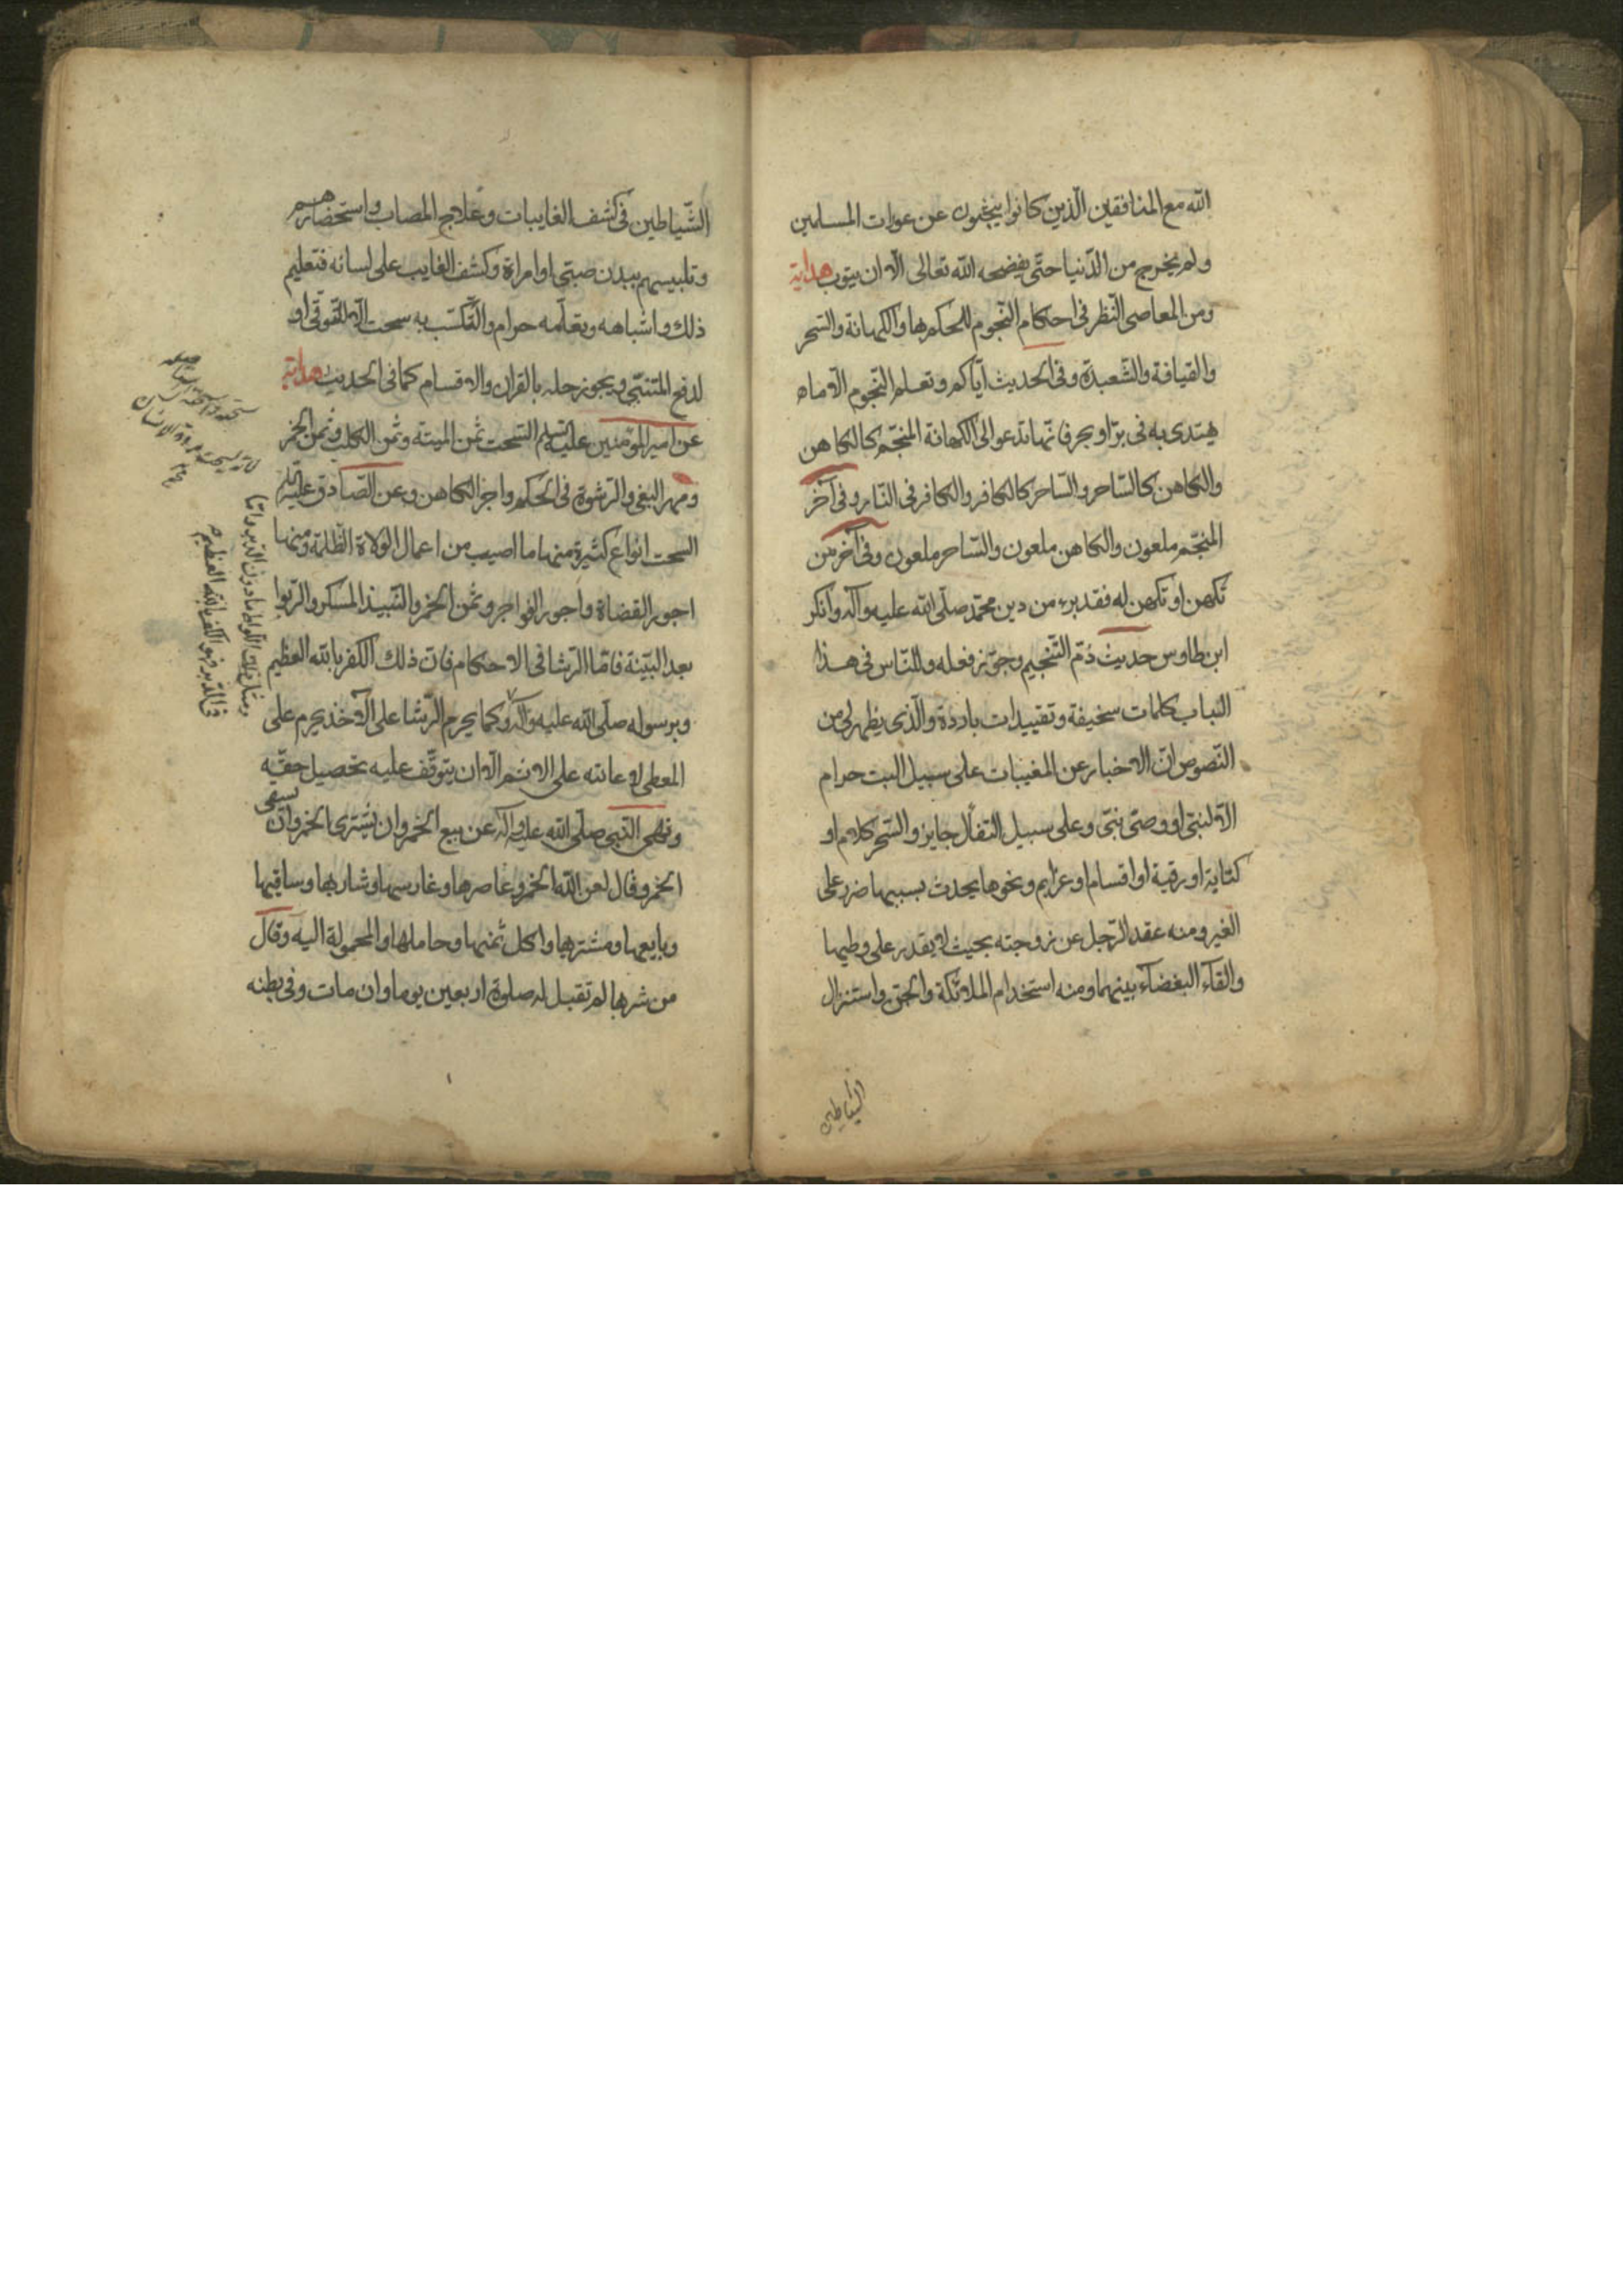 الله مع المنافقين الّذين كانوا يبحثون عن عورات المسلمين
ولم يخرج من الدّنيا حتّى يفضحه الله تعالى الّا ان يتوب هداية
ومن المعاصى النّظر فى احكام النّجوم للحكم بها والكهانة والسّحر
والقيافة والشّعبدة وفى الحديث ايّاكم وتعلم النّجوم الّا ما
يهتدى به فى برّ او بحر فانّها تدعو الى الكهانة المنجّم كالكاهن
والكاهن كالسّاحر والسّاحر كالكافر والكافر فى النّار وفى آخر
المنجّم ملعون والكاهن ملعون والسّاحر ملعون وفى آخر من
تكهن او تكهن له فقد برء من دين محمّد صلّى الله عليه وآله وانكر
ابن طاوس حديث ذمّ التّنجيم وجوّز فعله وللنّاس فى هذا
الباب كلمات سخيفة وتقييدات باردة والّذى يظهر لى من
النّصوص انّ الاخبار عن المغيبات على سبيل البت حرام
الّا لنبىّ او وصىّ نبىّ وعلى سبيل التفأل جايز والسّحر كلام او
كتابة او رقية او اقسام او عزايم ونحوها يحدث بسببها ضرر على
الغير ومنه عقد الرّجل عن زوجته بحيث لا يقدر على وطيها
والقاء البغضاء بينهما ومنه استخدام الملائكة والجنّ واستنزال
الشياطين
الشّياطين فى كشف الغايبات وعلاج المصاب واستحضارهم
وتلبيسهم ببدن صبىّ او امراة وكشف الغايب على لسانه فتعليم
ذلك واشباهه وتعلّمه حرام والتّكسّب به سحت الّا للتّوقّى او
لدفع المتنبّى ويجوز حله بالقران والاقسام كما فى الحديث هداية
عن امير المؤمنين عليه السّلم السّحت ثمن الميتة وثمن الكلب وثمن الخمر
ومهر البغى والرّشوة فى الحكم واجر الكاهن وعن الصّادق عليه السّلم
السّحت انواع كثيرة منها ما اصيب من اعمال الولاة الظّلمة ومنها
اجور القضاة واجور الفواجر وثمن الخمر والنّبيذ المسكر والرّبوا
بعد البيّنة فامّا الرّشا فى الاحكام فانّ ذلك الكفر بالله العظيم
وبرسوله صلّى الله عليه وآله وكما يحرم الرّشا على الآخذ يحرم على
المعطى لاعانته على الاثم الّا ان يتوقّف عليه تحصيل حقّه
ونهى النّبى صلّى الله عليه وآله عن بيع الخمر وان يشترى الخمر وان يسقى
الخمر وقال لعن الله الخمر وعاصرها وغارسها وشاربها وساقيها
وبايعها ومشتريها واكل ثمنها وحاملها والمحمولة اليه وقال
من شربها لم تقبل له صلوة اربعين يوما وان مات وفى بطنه
ومثل ذلك اللواط ما دون الدّبر وامّا
فى الدّبر فهو الكفر بالله العظيم